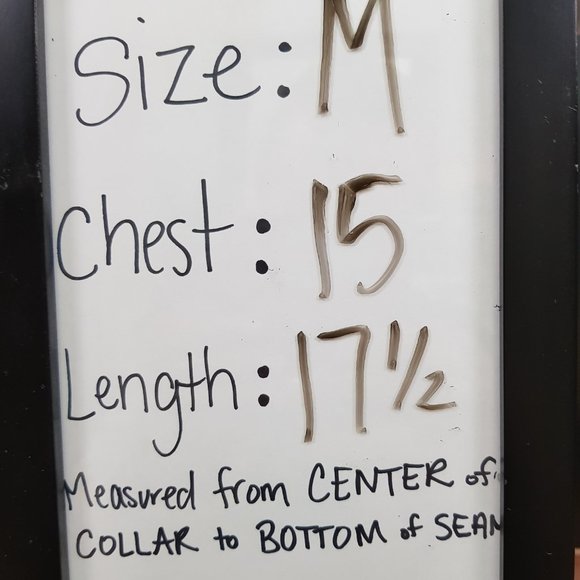 Size: M
Chest: 15
Length: 17 1/2
Measured from CENTER of
COLLAR to BOTTOM of SEAM